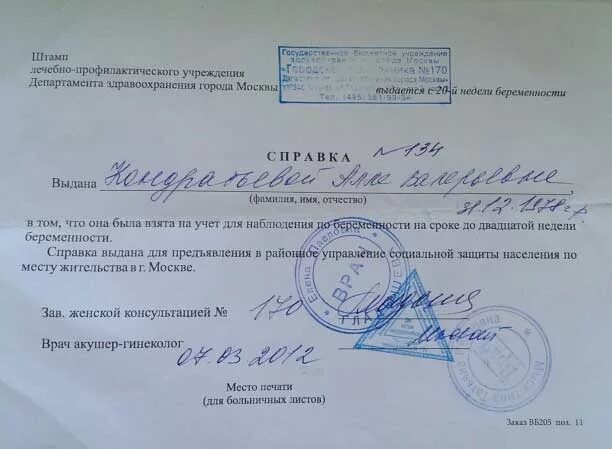 Штамп
лечебно-профилактического учреждения
Департамента здравоохранения города Москвы
Государственное бюджетное учреждение
здравоохранения города Москвы
№170
Тел. (495)
выдается с 20-й недели беременности
СПРАВКА №134
Выдана Кондратьевой Алле Валерьевне,
(фамилия, имя, отчество)
31.12.1978 г.р.
в том, что она была взята на учет для наблюдения по беременности на сроке до двадцатой недели
беременности.
Справка выдана для предъявления в районное управление социальной защиты населения по
месту жительства в г. Москве.
Елена Павловна
ВРАЧ
Зав. женской консультацией № 170
Врач акушер-гинеколог
07.03 2012
Место печати
(для больничных листов)
Заказ ВБ205 поз. 11